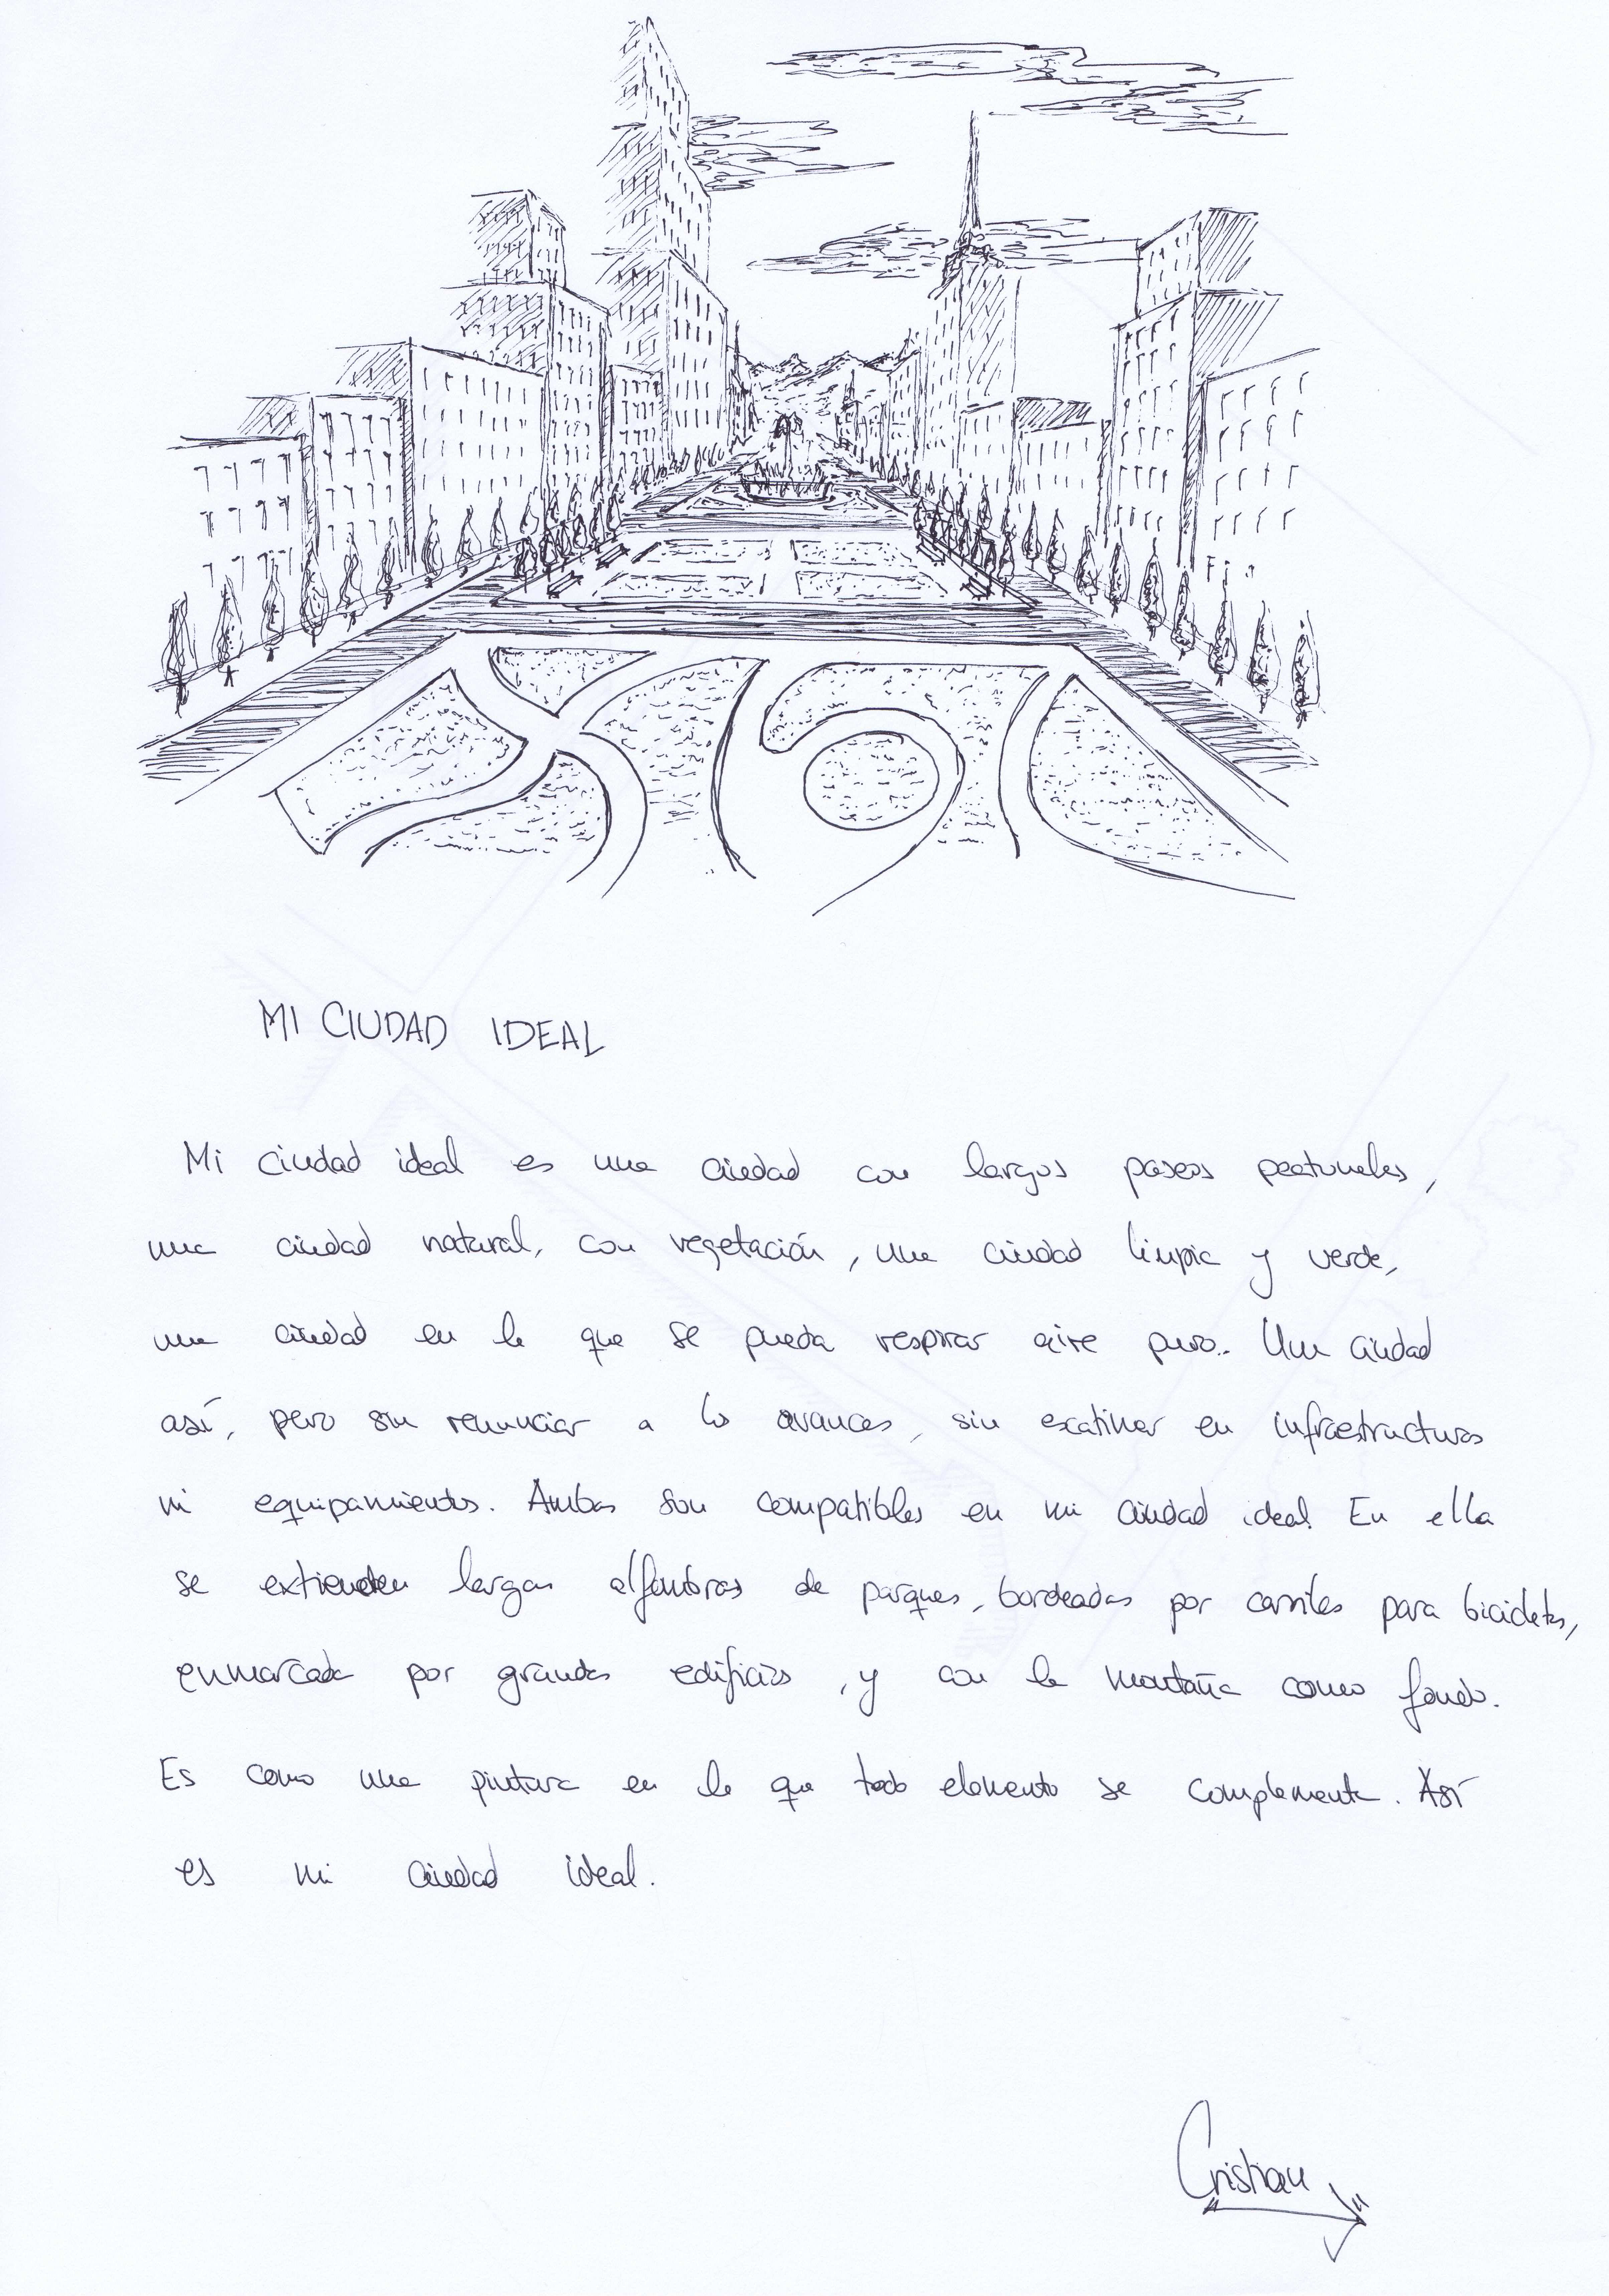 MI CIUDAD IDEAL
Mi ciudad ideal es una ciudad con largos paseos peatonales,
una ciudad natural, con vegetación, una ciudad limpia y verde,
una ciudad en la que se pueda respirar aire puro.. Una ciudad
así, pero sin renunciar a los avances, sin escatimar en infraestructuras
ni equipamientos. Ambas son compatibles en mi ciudad ideal. En ella
se extienden largas alfombras de parques, bordeadas por carriles para bicicletas,
enmarcada por grandes edificios, y con la montaña como fondo.
Es como una pintura en la que todo elemento se complementa. Así
es mi ciudad ideal.
Cristian